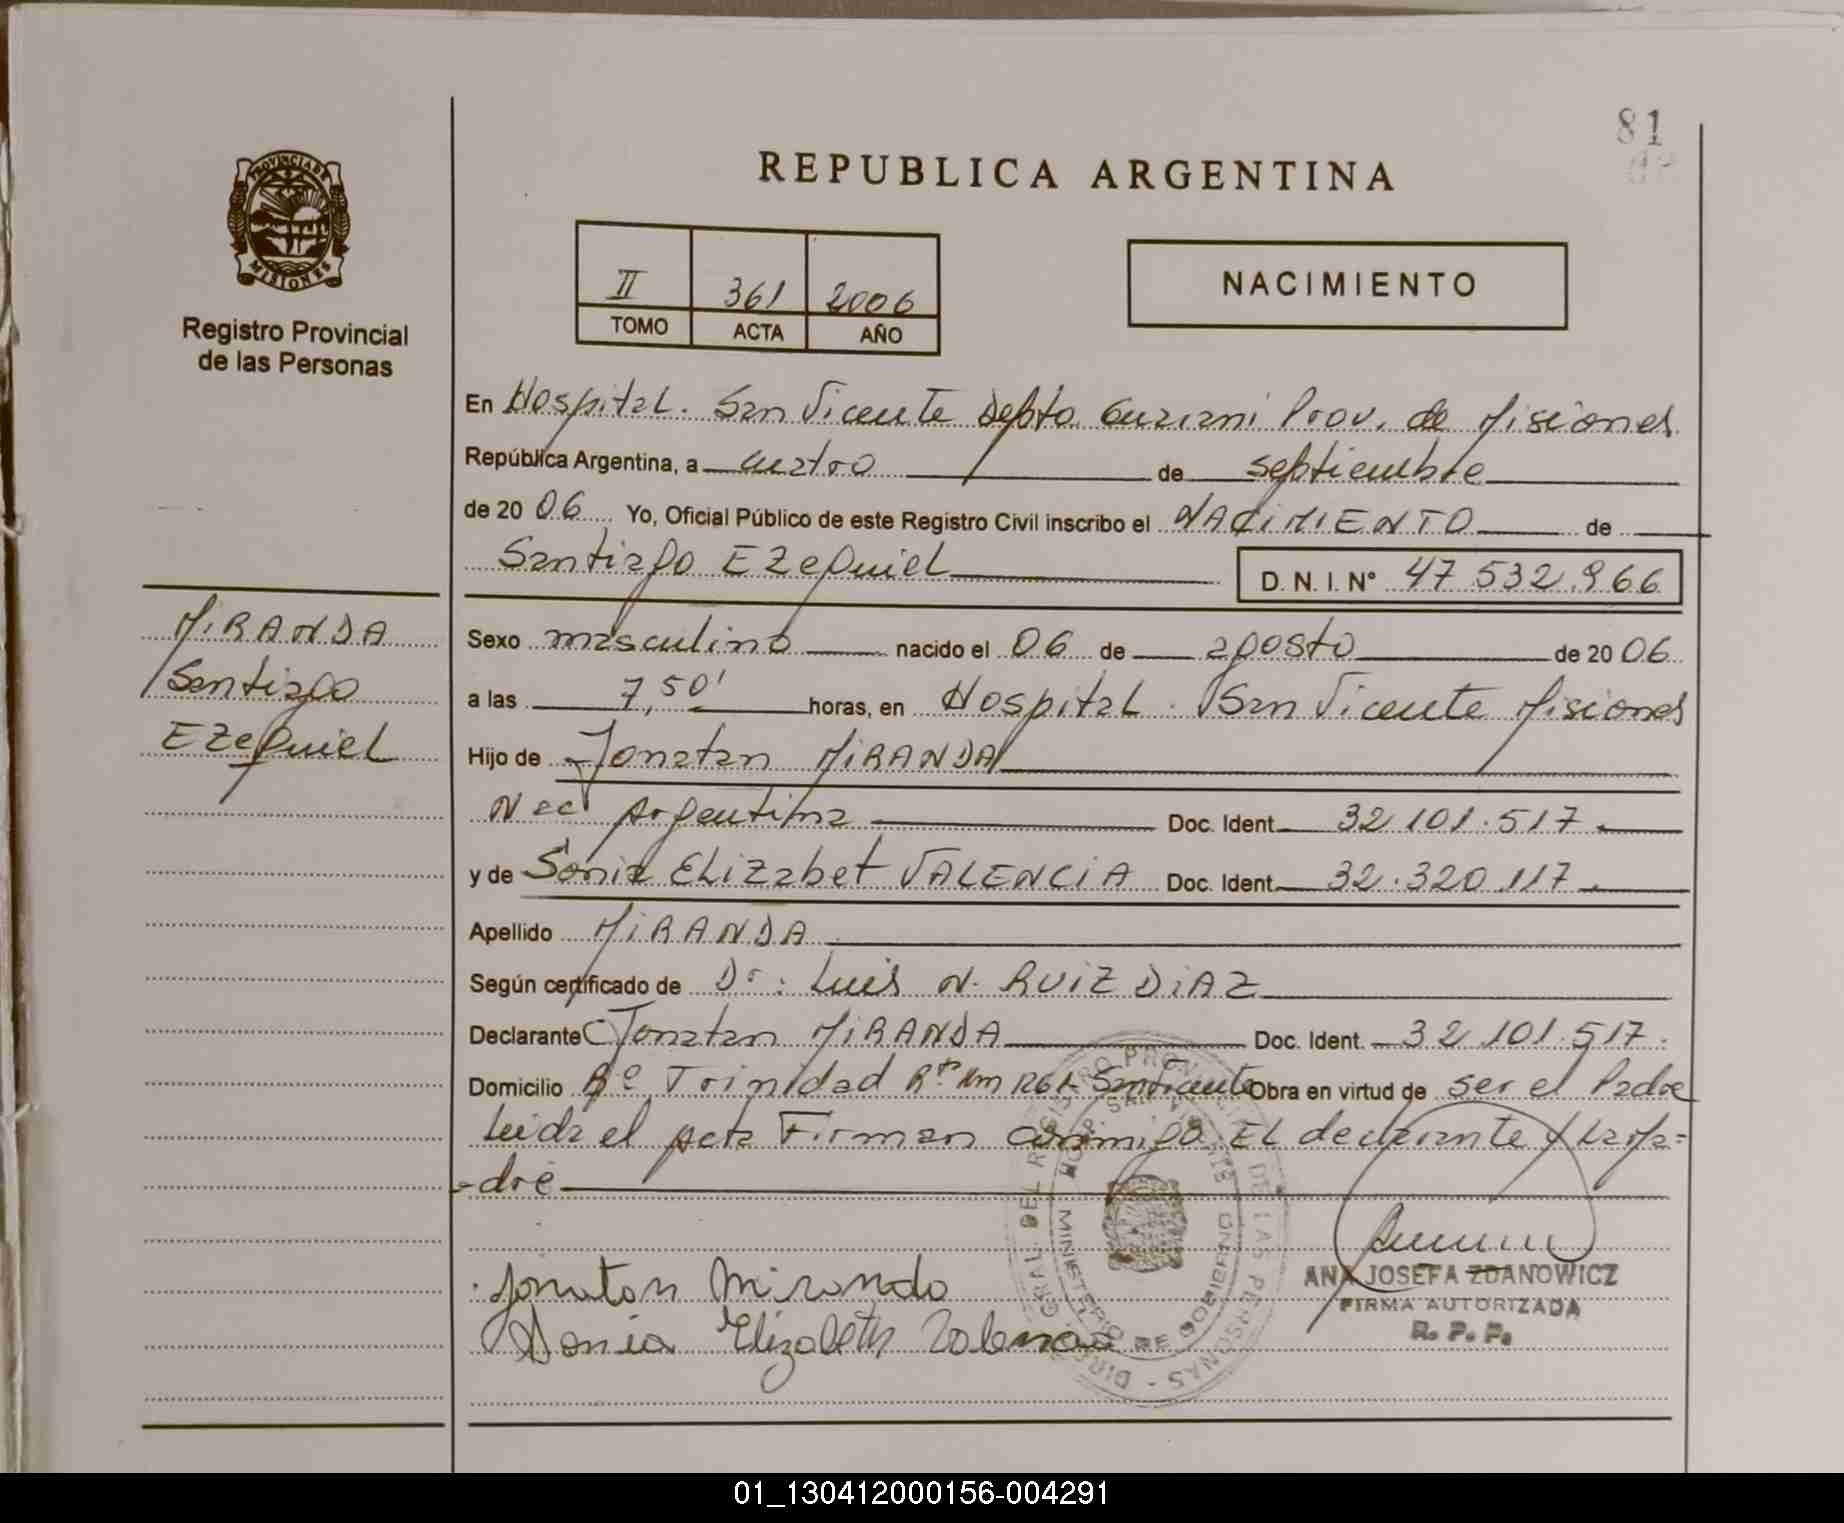 81
REPUBLICA ARGENTINA
PROVINCIA DE
MISIONES
Registro Provincial
de las Personas
II 361 2006
TOMO ACTA AÑO
NACIMIENTO
En Hospital. San Vicente Depto. Guarani Prov. de Misiones
República Argentina, a cuatro de septiembre
de 2006 Yo, Oficial Público de este Registro Civil inscribo el NACIMIENTO de
Santiago EZequiel D. N. I. Nº 47.532.966
MIRANDA
Santiago
EZequiel
Sexo masculino nacido el 06 de agosto de 2006
a las 7,50' horas, en Hospital. San Vicente Misiones
Hijo de Jonatan MIRANDA
Nac Argentina Doc. Ident. 32.101.517.
y de Sonia Elizabet VALENCIA Doc. Ident. 32.320.117.
Apellido MIRANDA
Según certificado de Dr: Luis N. RUIZ DIAZ
Declarante Jonatan MIRANDA Doc. Ident. 32.101.517.
Domicilio Bº Trinidad Rta Km 1261 San Vicente Obra en virtud de ser el Padre
Leida el acta Firman conmigo EL declarante y La Ma=
-dre
Jonatan Miranda
Sonia Elizabeth Valencia
ANA JOSEFA ZDANOWICZ
FIRMA AUTORIZADA
R. P. P.
DIREC. GRAL. DEL REGISTRO PROVINCIAL DE LAS PERSONAS
HOSP. SAN VICENTE
MINISTERIO DE GOBIERNO
01_130412000156-004291